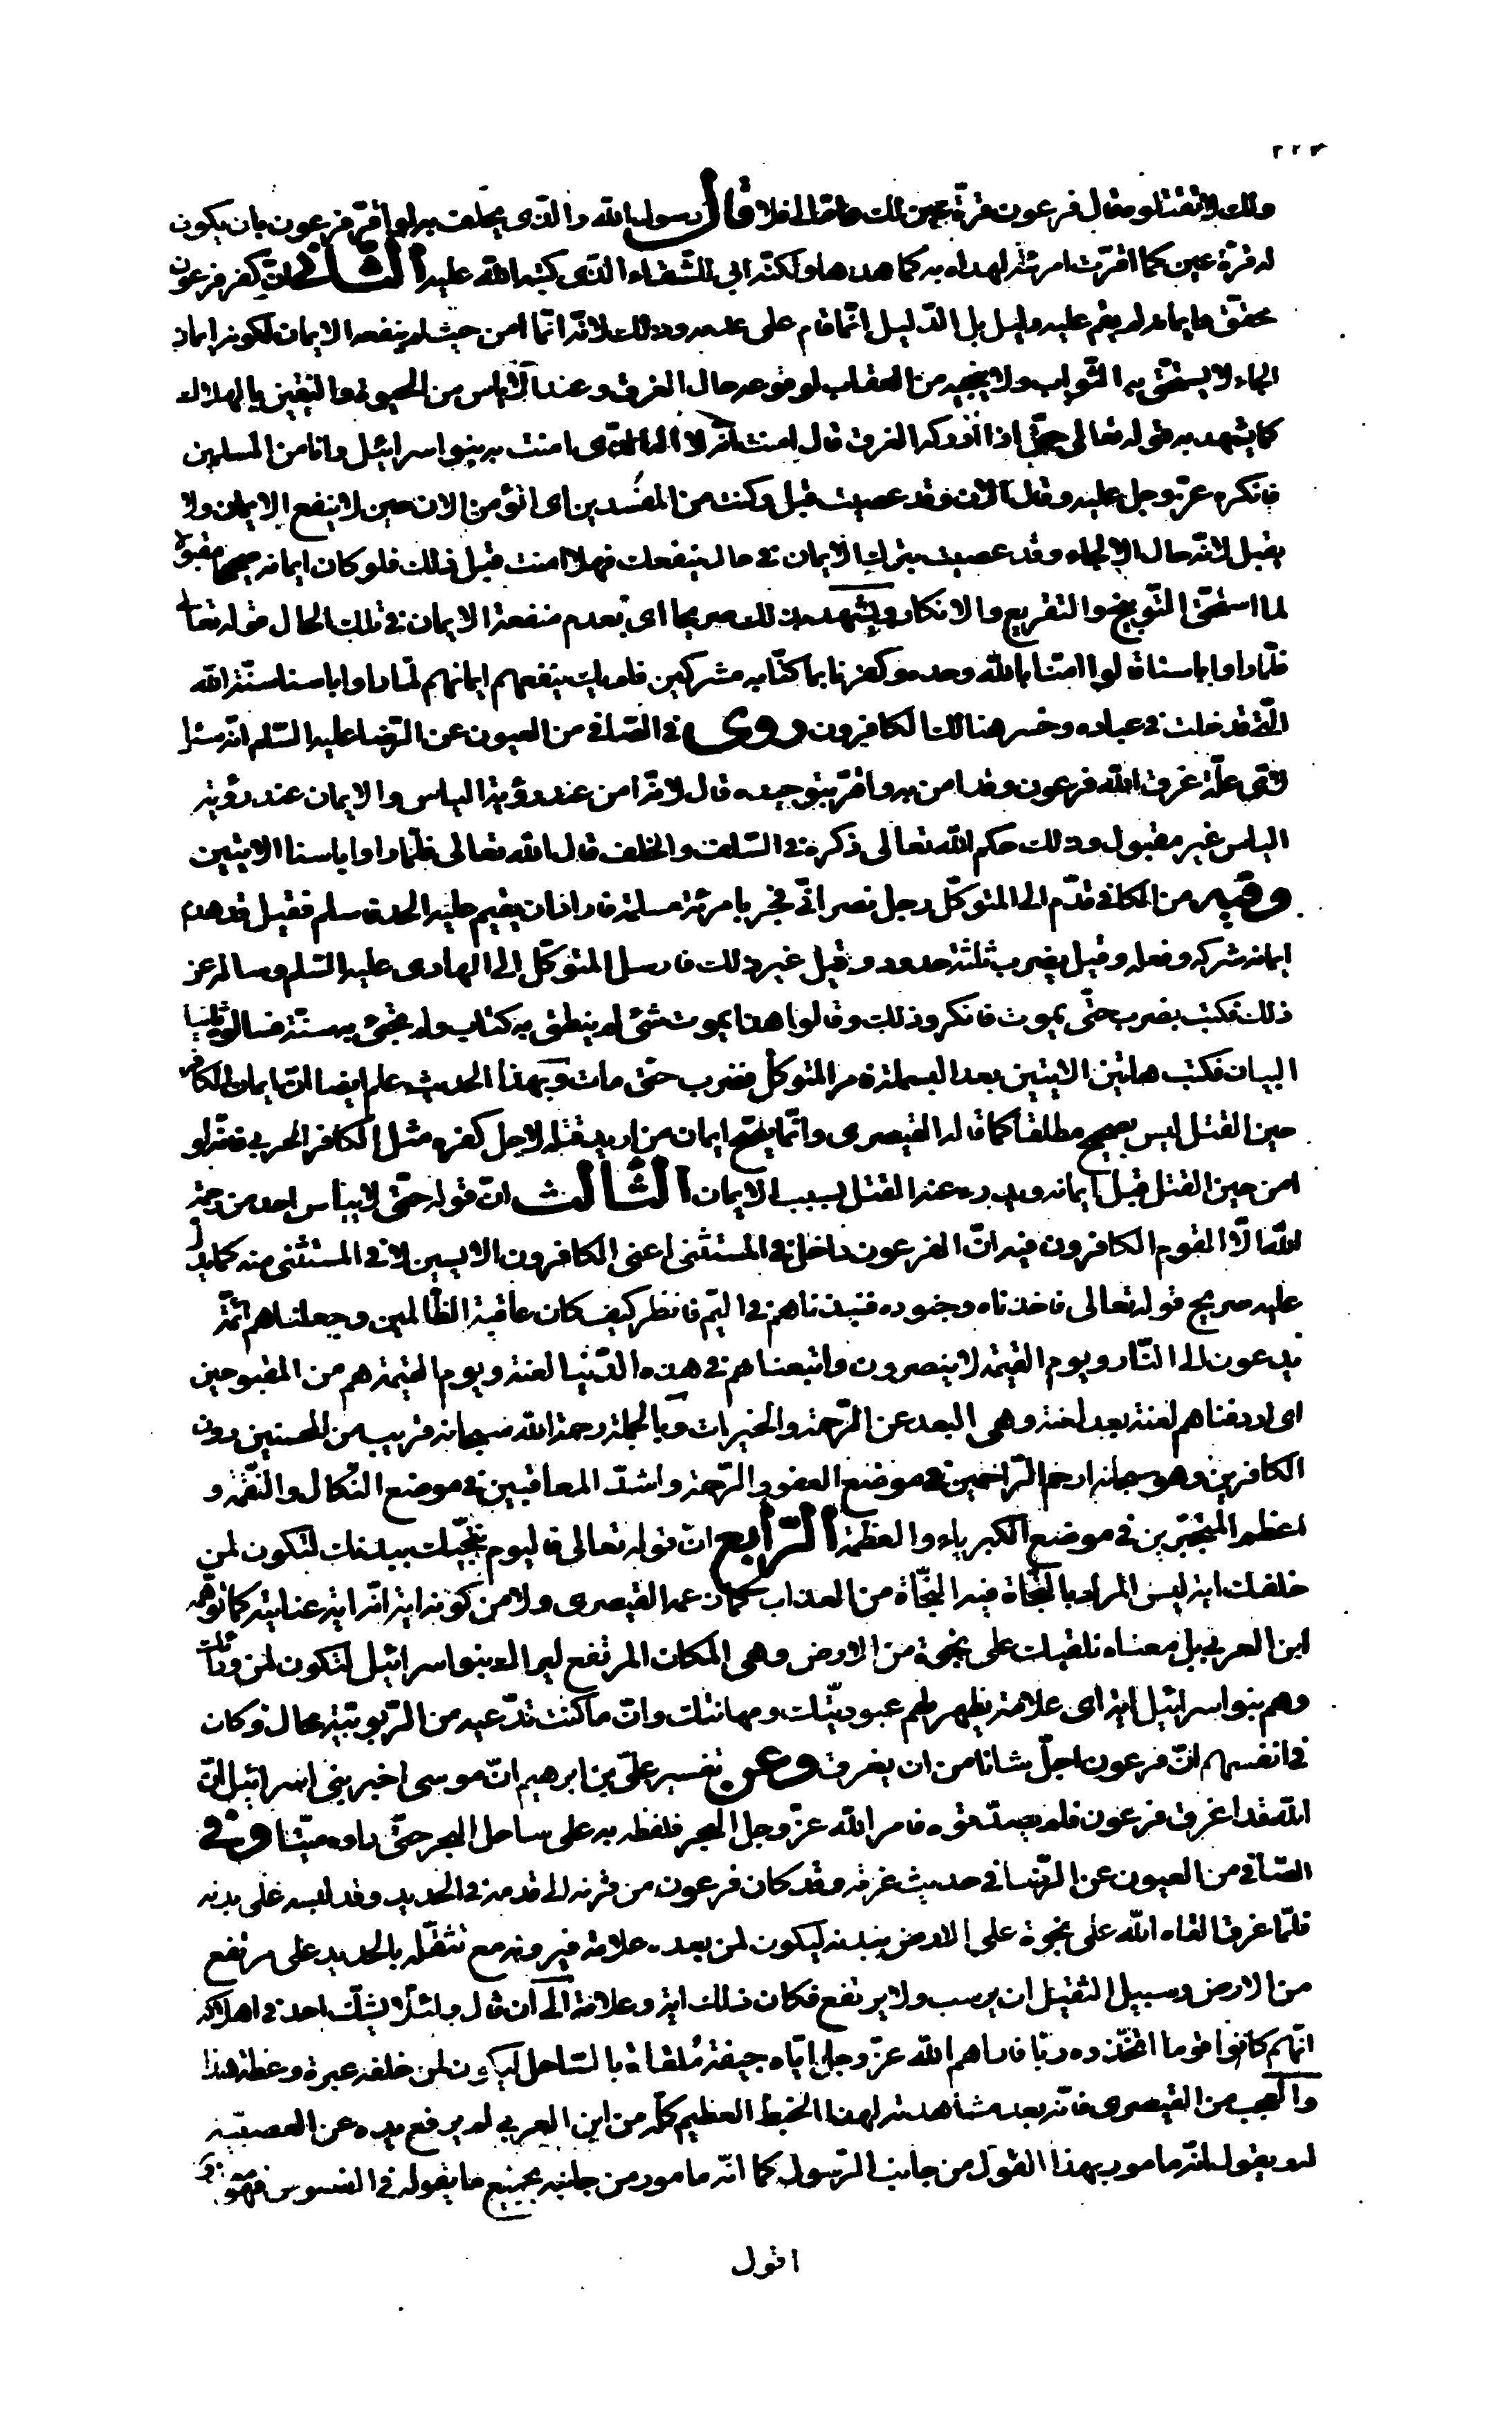 ٢٢٣
ولك لا تقتلوه فقال فرعون قرة عين لك فامّا لى فلا قال رسول الله والذى يحلف به لو اقرّ فرعون بان يكون
له قرة عين كما اقرّت امرئته لهداه به كما هداها ولكنّه ابى للشقاء الذى كتبه الله عليه الثانى انّ كفر فرعون
محقق وايمانه لم يقم عليه دليل بل الدّليل انّما قام على عدمه وذلك لانّه انّما امن حيث لم ينفعه الايمان لكونه ايمان
الجاء لا يستحقّ به الثّواب ولا ينجيه من العقاب لوقوعه حال الغرق وعند الاياس من الحيوة واليقين بالهلاك
كما يشهد به قوله تعالى حتّى اذا ادركه الغرق قال امنت انّه لا اله الا الّذى امنت به بنوا اسرائيل وانا من المسلمين
فانكره عزّ وجل عليه وقال الان وقد عصيت قبل وكنت من المفسدين اى اتؤمن الان حين لا ينفع الايمان ولا
يقبل لانّه حال الالجاء وقد عصيت بترك الايمان فى حال ينفعك فهلا امنت قبل ذلك فلو كان ايمانه صحيحا مقبولا
لما استحقّ التّوبيخ والتقريع والانكار ويشهد بذلك صريحا اى بعدم منفعة الايمان فى تلك الحال قوله تعالى
فلمّا راوا باسنا قالوا امنّا بالله وحده وكفرنا بما كنّا به مشركين فلم يك ينفعهم ايمانهم لمّا راوا باسنا سنّة الله
الّتى قد خلت فى عباده وخسر هنالك الكافرون روى فى الصّافى من العيون عن الرّضا عليه السّلم انّه سئل
لاىّ علّة غرق الله فرعون وقد امن به واقرّ بتوحيده قال لانّه امن عند رؤية الباس والايمان عند رؤية
الباس غير مقبول وذلك حكم الله تعالى ذكره فى السّلف والخلف قال الله تعالى فلمّا راوا باسنا الايتين
وفيه من الكافى قدّم الى المتوكّل رجل نصرانّى فجر بامرئة مسلمة فاراد ان يقيم عليه الحد فاسلم فقيل قد هدم
ايمانه شركه وفعله وقيل يضرب ثلثة حدود وقيل غير ذلك فارسل المتوكّل الى الهادى عليه السّلم وساله عن
ذلك فكتب يضرب حتّى يموت فانكروا ذلك وقالوا هذا يموت شىء لم ينطق به كتاب ولم تجىء به سنّة فسالوه ثانيا
البيان فكتب هاتين الايتين بعد البسملة فامر المتوكّل فضرب حتى مات وبهذا الحديث علم ايضا انّ ايمان الكافر
حين القتل ليس بصحيح مطلقا كما قاله القيصرى وانّما يصّح ايمان من اريد قتله لاجل كفره مثل الكافر الحربى فانّه لو
امن حين القتل قبل ايمانه ويدرء عنه القتل بسبب الايمان الثالث انّ قوله حتّى لا ييأس احد من رحمة
الله الّا القوم الكافرون فيه انّ الفرعون داخل فى المستثنى اعنى الكافرون الايسين لا فى المستثنى منه كما يدلّ
عليه صريح قوله تعالى فاخذناه وجنوده فنبذناهم فى اليّم فانظر كيف كان عاقبة الظّالمين وجعلناهم ائمّة
يدعون الى النّار ويوم القيمة لا ينصرون واتبعناهم فى هذه الدّنيا لعنة ويوم القيمة هم من المقبوحين
اى اردفناهم لعنة بعد لعنة وهى البعد عن الرّحمة والخيرات وبالجملة رحمة الله سبحانه قريب من المحسنين دون
الكافرين وهو سبحانه ارحم الرّاحمين فى موضع العفو والرّحمة واشدّ المعاقبين فى موضع النّكال والنّقمة و
اعظم المتجبّرين فى موضع الكبرياء والعظمة الرّابع انّ قوله تعالى فاليوم ننجّيك ببدنك لتكون لمن
خلفك اية ليس المراد بالنّجاة فيه النجّاة من العذاب كما زعمه القيصرى ولا من كونه اية انّه اية عنايته كما توهّمه
ابن العربى بل معناه نلقيك على نجوة من الارض وهى المكان المرتفع ليراك بنو اسرائيل لتكون لمن ورائك
وهم بنو اسرائيل اية اى علامة يظهر لهم عبوديّتك ومهانتك وانّ ما كنت تدّعيه من الرّبوبيّة محال وكان
فى انفسهم انّ فرعون اجلّ شانا من ان يغرق وعن تفسير علىّ بن ابرهيم انّ موسى اخبر بنى اسرائيل انّ
الله قد اغرق فرعون فلم يصدّقوه فامر الله عزّ وجل البحر فلفظ به على ساحل البحر حتّى راوه ميّتا وفى
الصّافى من العيون عن الرّضا فى حديث غرقه وقد كان فرعون من قرنه الى قدمه فى الحديد وقد لبسه على بدنه
فلمّا غرق القاه الله على نجوة على الارض ببدنه ليكون لمن بعده علامة فيرونه مع تثقّله بالحديد على مرتفع
من الارض وسبيل الثقيل ان يرسب ولا يرتفع فكان ذلك اية وعلامة الى ان قال ولئلّا يشكّ احد فى اهلاكه
انّهم كانوا قوما اتّخذوه ربّا فاراهم الله عزّ وجل ايّاه جيفة مُلقاة بالسّاحل ليكون لمن خلفه عبرة وعظة هذا
والعجب من القيصرى فانّه بعد مشاهدته لهذا الخبط العظيم كلّه من ابن العربى لم يرفع يده عن العصبيّة
له ويقول انّه مامور بهذا القول من جانب الرّسول كما انّه مامور من جانبه بجميع ما يقوله فى الفصوص فهو
اقول